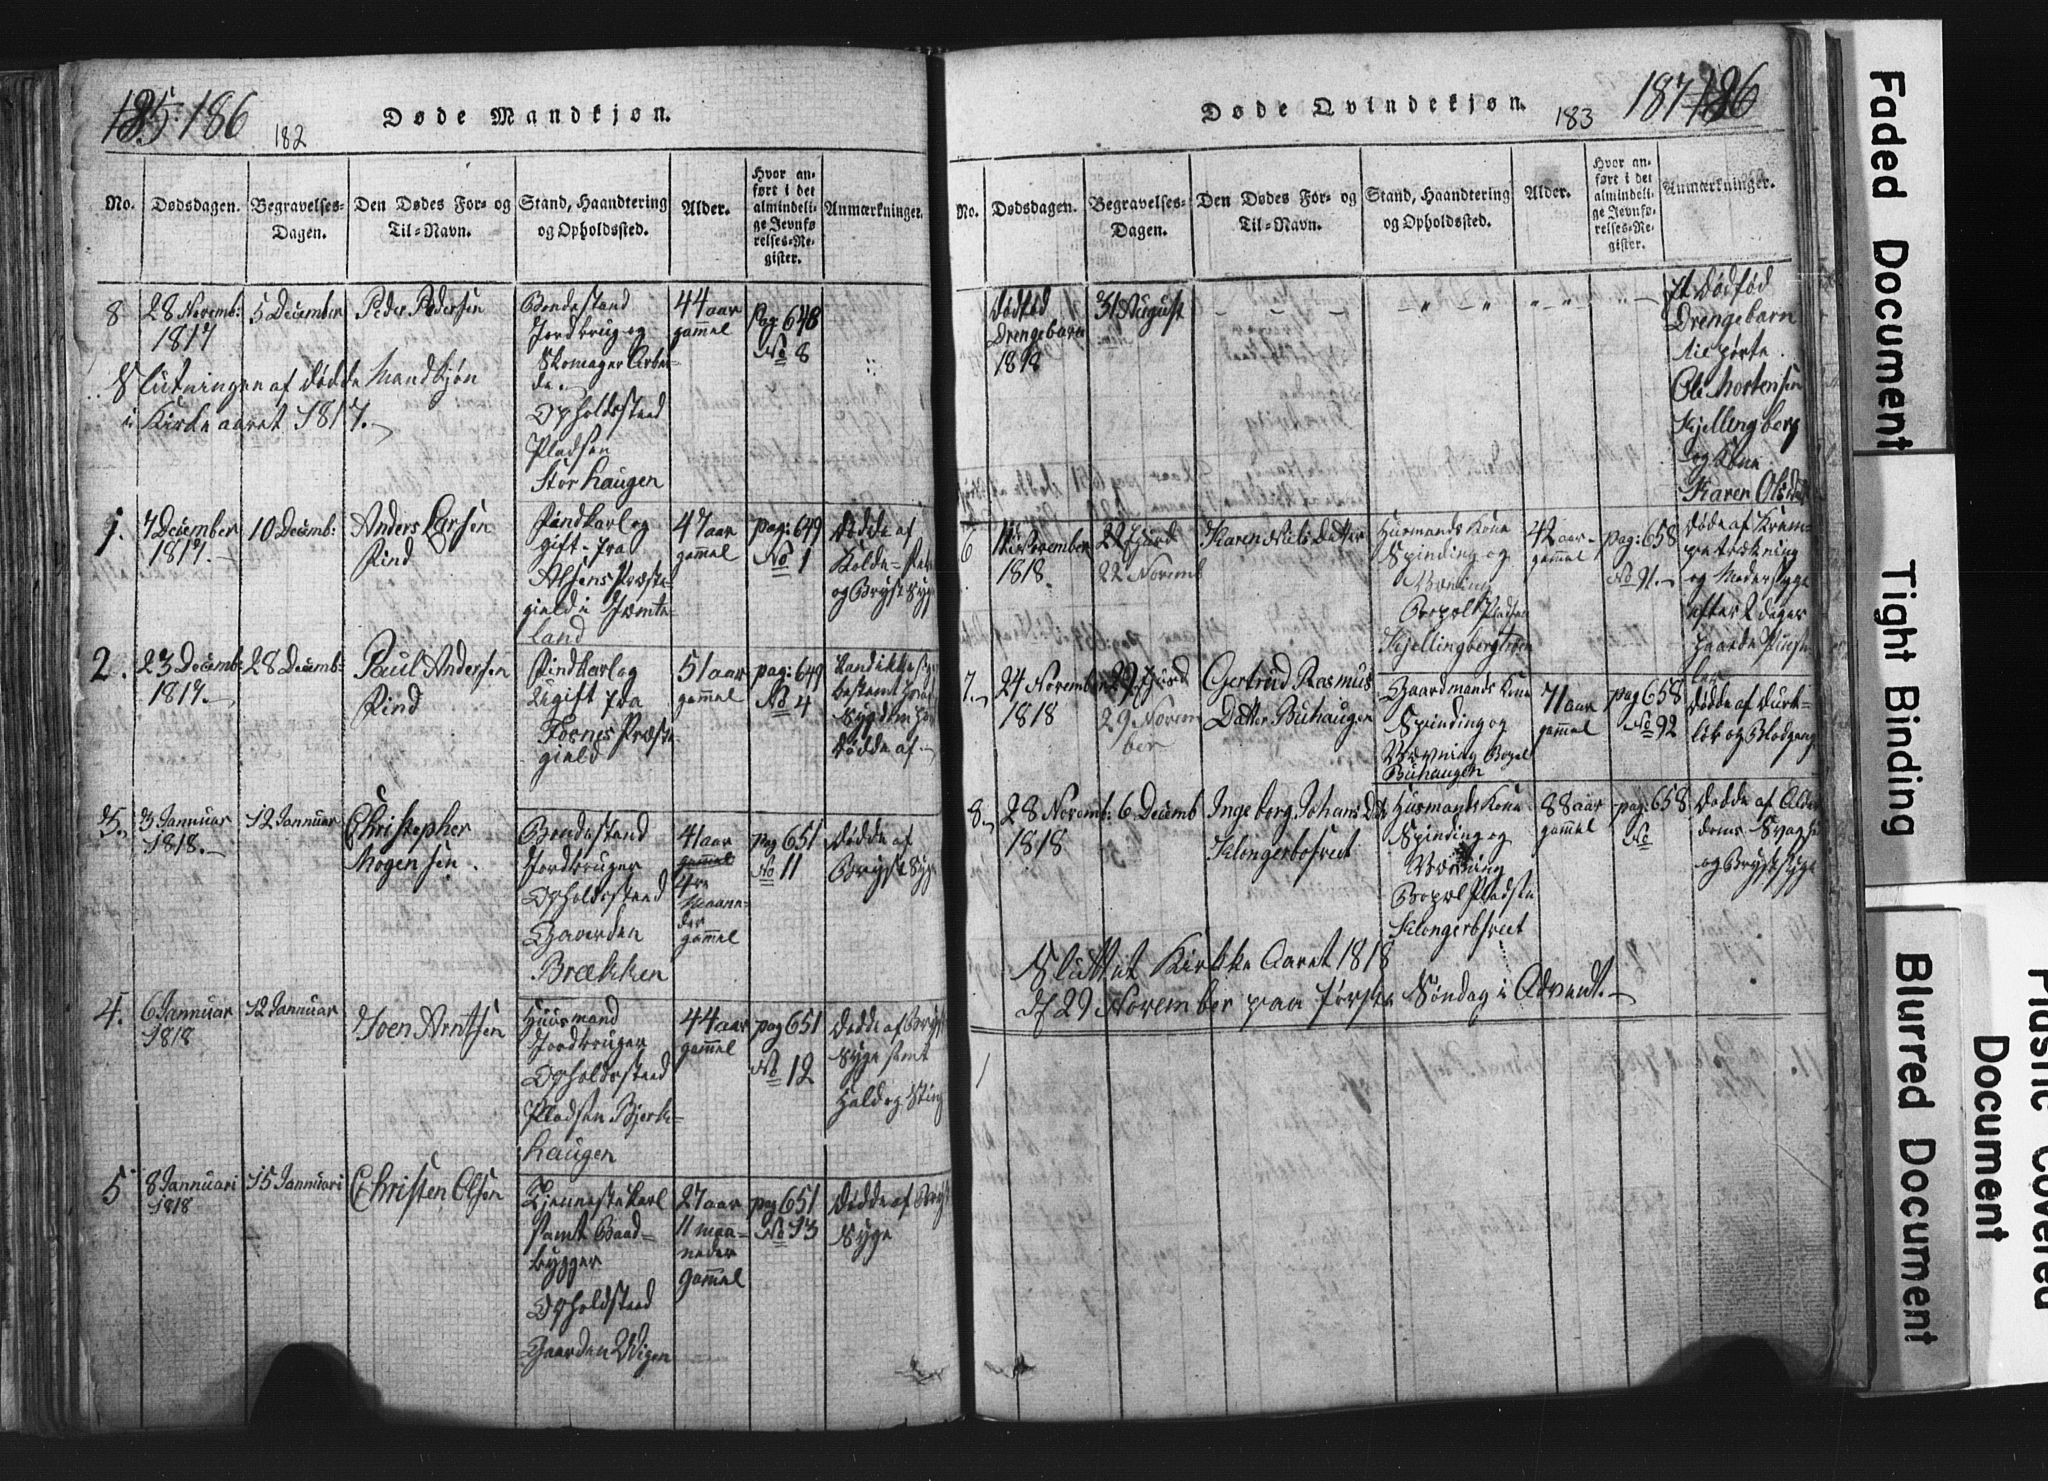 185: 186
182
Døde Mandkjøn.
No.
Dødsdagen.
Begravelses-
Dagen.
Den Dødes For- og
Til-Navn.
Stand, Haandtering
og Opholdssted.
Alder.
Hvor an-
ført i det
almindeli-
ge Jevnfø-
relses-Re-
gister.
Anmærkninger.
8
28 Novemb:
1817
5 December
Peder Pedersen
Bondestand
Jordbrug og
Skomager Arbei-
de.
Opholdsstæd
Pladsen
Storhaugen
44 aar
gammel
Pag 648
No 8
Slutningen af dødde Mandkjøn
i Kirkeaaret 1817.
1.
7 December
1817.
10 Decemb:
Anders Larsen
Find
Findkarl og
gift. fra
Alsens Præste
gield i Jæmte-
Land
47 aar
gammel
pag: 649
No 1
Dødde af
Kolde-
og Brystsyge
2.
23 Decemb:
1817.
28 Decemb:
Paul Andersen
Find
Findkarl og
Ugift fra
Fosnes Præste
gield
51 aar
gammel
pag: 649
No 4
Kand ikke
bestemt
Sygdom
dødde af
3.
3 Januar
1818.
12 Januar
Christopher
Mogensen.
Bondestand
Jordbruger
Opholdsstæd
Gaarden
Brækken
41 aar
gammel
4re
Maane-
der
gammel
pag 651
No 11
Dødde af
Brystsyge
4.
6 Januar
1818
12 Januar
Joen Arntsen
Huusmand
Jordbruger
Opholdsstæd
Pladsen Bjerk-
haugen
44 aar
gammel
pag 651
No 12
Dødde af Bryst
Syge samt
Hold og Sting
5
8 Januari
1818
15 Januari
Christen Olsen
Tjennestekarl
samt Baad-
bygger
Opholdstæd
Gaarden Wigen
27 aar
11 maa-
neder
Gammel
pag 651
No 13
Dødde af Bryst
Syge
Døde Qvindekjøn.
183
187 186
No.
Dødsdagen.
Begravelses-
Dagen.
Den Dødes For- og
Til-Navn.
Stand, Haandtering
og Opholdssted.
Alder.
Hvor an-
ført i det
almindeli-
ge Jevnfø-
relses-Re-
gister.
Anmærkninger.
Dødfød
Drengebarn
1818
31 August
Et Dødfød
Drengebarn
Ole Mortensen
Kjellingberg
og Kone
Karen Olsdatter
6
November
1818.
22 
22 Novemb
Karen Nils Datter
Husmands Kone
Spinding og
Wævning
Bopæl Pladsen
Kjellingbergtrøen
42 aar
gammel
pag: 658
No 91.
Døde af Kram-
petrækning
og Modersyge
efter 2 dages
haarde
7.
24 November
1818
29
29 Novem
ber
Gertrud Rasmus
Datter Buhaugen
Gaardmands Kone
Spinding og
Wævning Bopæl
Buhaugen
71 aar
gammel
pag 658
No 92
Dødde af Durk-
løb og Blodgang
8.
28 Novemb:
1818
6 Decemb
Ingeborg Johans Dat
Klongerbosveet
Husmands Kone
Spinding og
Wævning
Bopæl Pladsen
Klongerbsveet
88 aar
gammel
pag: 658
No
Dødde af Alder
doms Svaghed
og Brystsyge
Sluttet Kirkke Aaret 1818
d 29 November paa første Søndag i Advent.
11.
Faded Document
Tight Binding
Blurred Document
Plastic Covered
Document